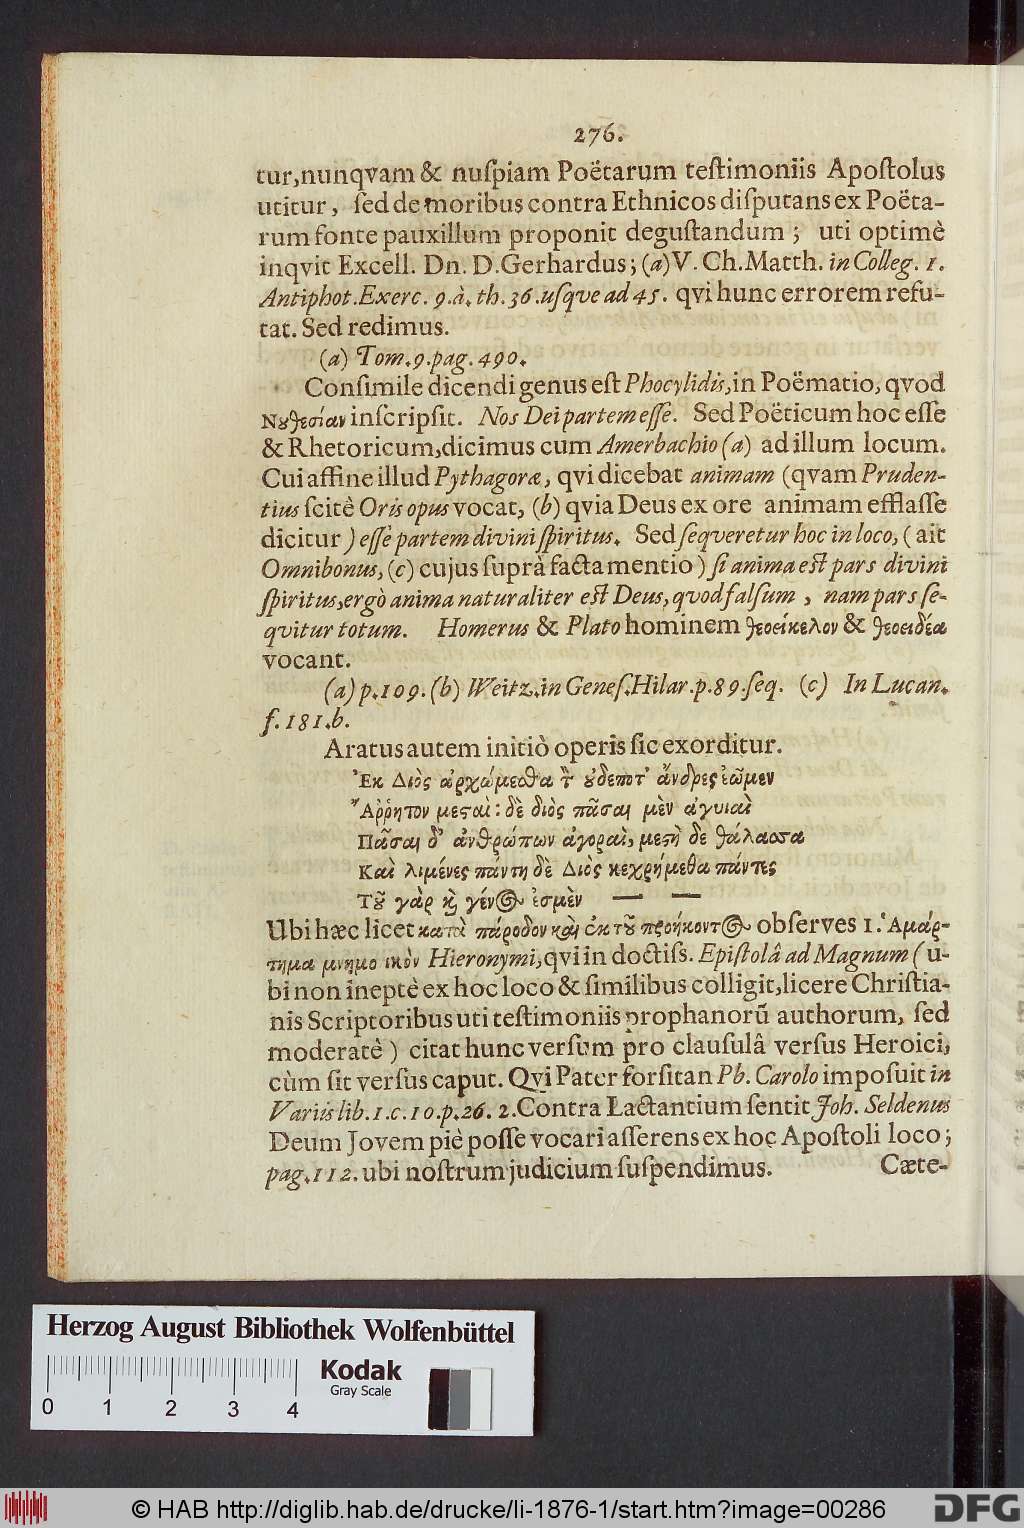 276.
tur,nunqvam & nuſpiam Poëtarum teſtimoniis Apoſtolus
utitur, ſed de moribus contra Ethnicos diſputans ex Poëta-
rum fonte pauxillum proponit deguſtandum; uti optimè
inqvit Excell. Dn. D. Gerhardus; (a) V. Ch. Matth. in Colleg. 1.
Antiphot. Exerc. 9. à. th. 36. uſque ad 45. qvi hunc errorem refu-
tat. Sed redimus.
(a) Tom. 9. pag. 490.
Conſimile dicendi genus eſt Phocylidis, in Poëmatio, qvod
Νουθεσίαν inſcripſit. Nos Dei partem eſſe. Sed Poëticum hoc eſſe
& Rhetoricum, dicimus cum Amerbachio (a) ad illum locum.
Cui affine illud Pythagoræ, qvi dicebat animam (qvam Pruden-
tius ſcitè Oris opus vocat, (b) qvia Deus ex ore animam efflaſſe
dicitur) eſſe partem divini ſpiritus. Sed ſeqveretur hoc in loco, (ait
Omnibonus, (c) cujus ſuprà facta mentio) ſi anima eſt pars divini
ſpiritus, ergò anima naturaliter eſt Deus, qvod falſum, nam pars ſe-
qvitur totum. Homerus & Plato hominem θεοείκελον & θεοειδέα
vocant.
(a) p. 109. (b) Weitz. in Geneſ. Hilar. p. 89. ſeq. (c) In Lucan.
f. 181. b.
Aratus autem initiò operis ſic exorditur.
Ἐκ Διὸς ἀρχώμεσθα τὸν οὐδέποτ' ἄνδρες ἐῶμεν
Ἄῤῥητον μεσταὶ: δὲ διὸς πᾶσαι μὲν ἀγυιαὶ
Πᾶσαι δ' ἀνθρώπων ἀγοραὶ, μεστὴ δὲ θάλασσα
Καὶ λιμένες πάντη δὲ Διὸς κεχρήμεθα πάντες
Τοῦ γὰρ καὶ γένος ἐσμὲν — —
Ubi hæc licet κατὰ πάροδον καὶ ἐκ τοῦ προήκοντος obſerves 1. Ἁμάρ-
τημα μνημο ικὸν Hieronymi, qvi in doctiſs. Epiſtolâ ad Magnum (u-
bi non ineptè ex hoc loco & ſimilibus colligit, licere Chriſtia-
nis Scriptoribus uti teſtimoniis prophanorũ authorum, ſed
moderatè) citat hunc verſum pro clauſulâ verſus Heroici,
cùm ſit verſus caput. Qvi Pater forſitan Pb. Carolo impoſuit in
Variis lib. 1. c. 10. p. 26. 2. Contra Lactantium ſentit Joh. Seldenus
Deum Jovem piè poſſe vocari aſſerens ex hoc Apoſtoli loco;
pag. 112. ubi noſtrum judicium ſuſpendimus. Cæte-
Herzog August Bibliothek Wolfenbüttel
Kodak
Gray Scale
0 1 2 3 4
© HAB http://diglib.hab.de/drucke/li-1876-1/start.htm?image=00286
DFG